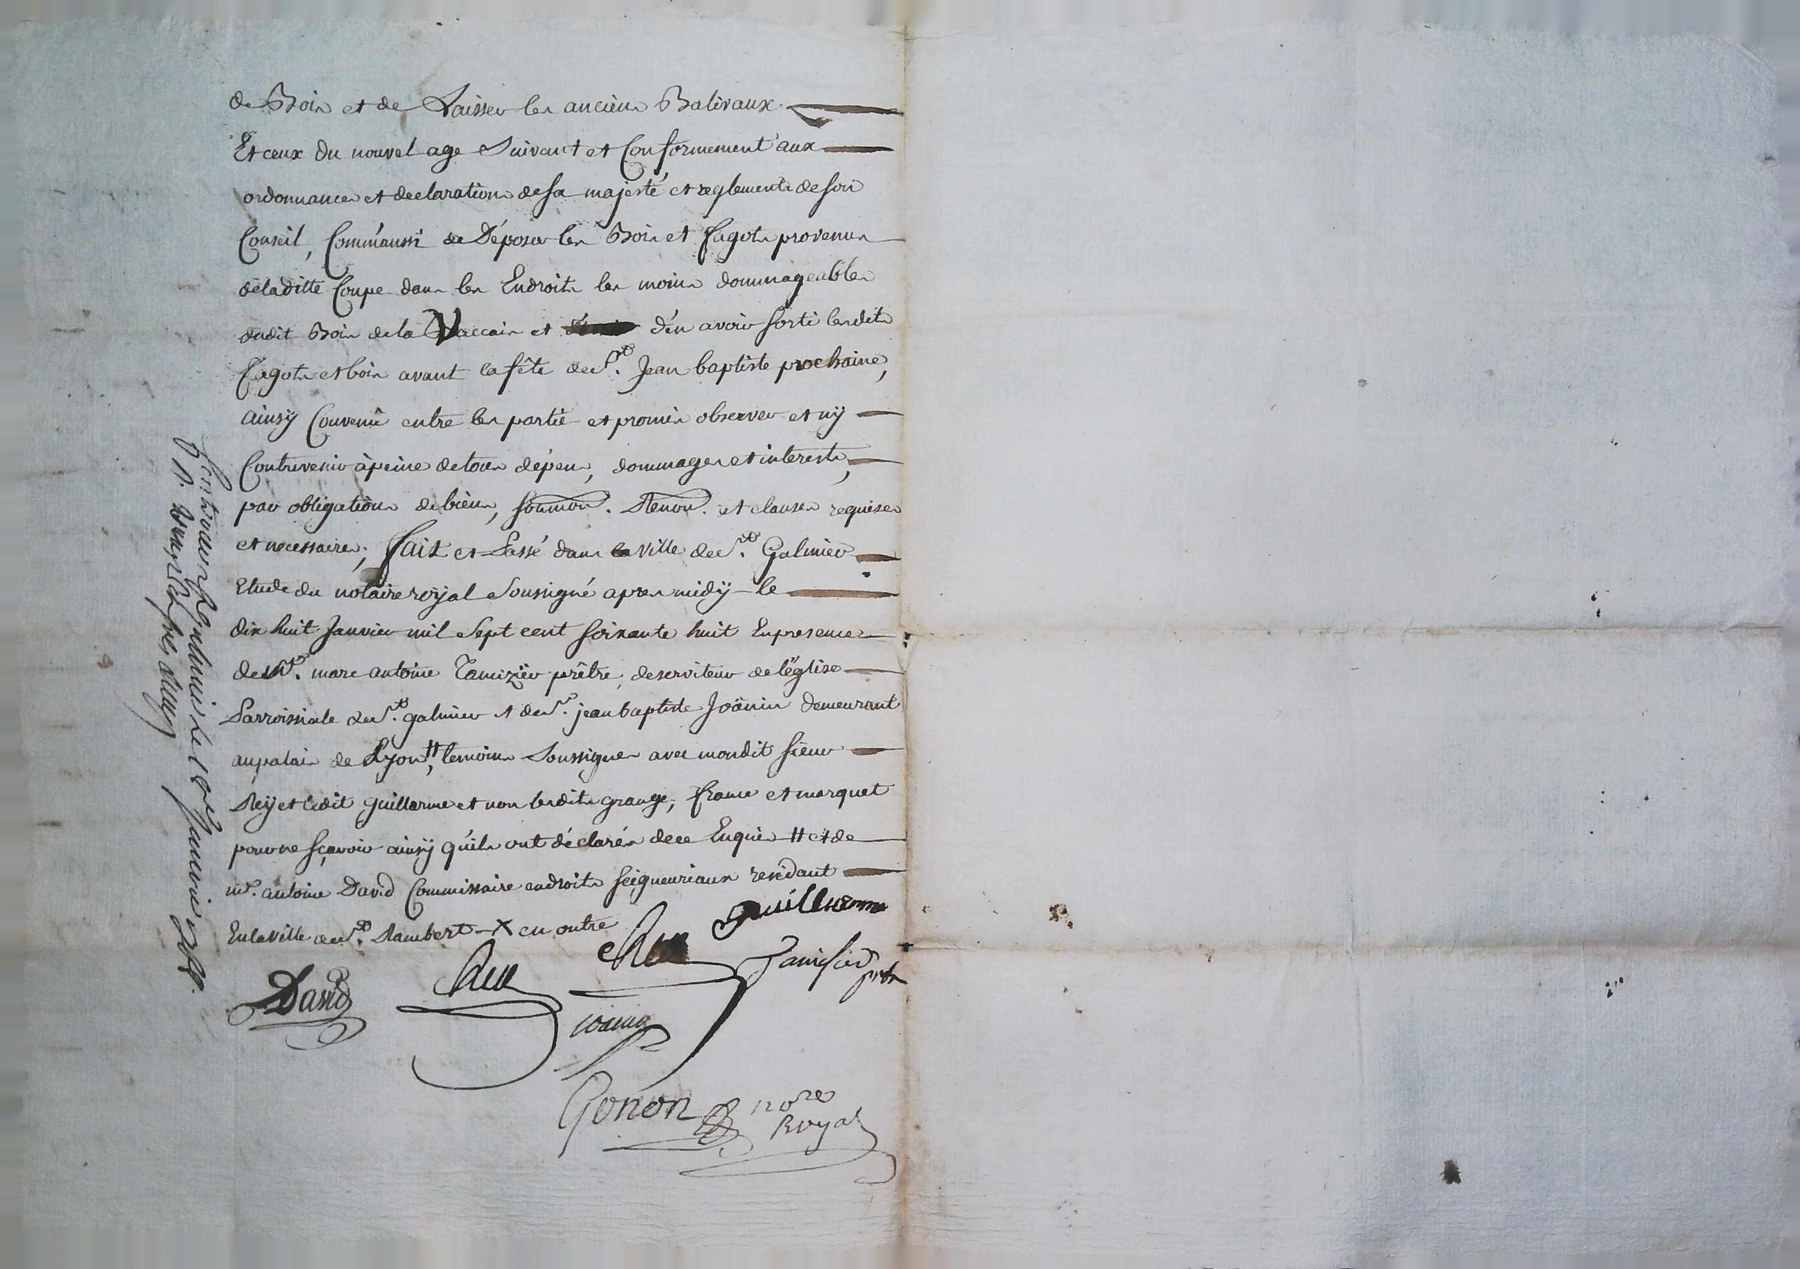 de Bois et de Laisser les anciens Balivaux
Et ceux du nouvel age Suivant et Conformement aux
ordonnances et declarations de sa majesté et reglements de son
Conseil, Comm'aussi de Déposer les Bois et fagots provenus
de laditte Coupe dans les Endroits les moins dommageables
dudit Bois de la Vaccais et d'en avoir sorti lesdits
fagots et bois avant la fête de St. Jean baptiste prochaine,
ainsy Convenu entre les partie et promis observer et ny
Contrevenir à peine de tous dépens, dommages et interests,
par obligations de biens, soumon. Renon. et clauses requises
et necessaires; fait et Passé dans la ville de St. Galmier
Etude du notaire royal Soussigné apres midÿ le
dix huit Janvier mil Sept cent soixante huit En presence
de Mre. marc antoine Tamizier prêtre, deserviteur de l'église
Parroissiale de St. galmier & de Sr. jean baptiste Joänin demeurant
au palais de Lyon, # temoins Soussignes avec mondit sieur
Reÿ et ledit guillarme et non lesdits grange, france et marquet
pour ne sçavoir ainsÿ qu'ils ont déclarés de ce Enquis # et de
me. antoine David Commissaire en droits seigneuriaux residant
En la ville de St. Rambert X en outre
guillverme
David
Rey
Rey
Tamisier
ptre
ioanin
Gonon nore
Royal
Galmier le
Janvier